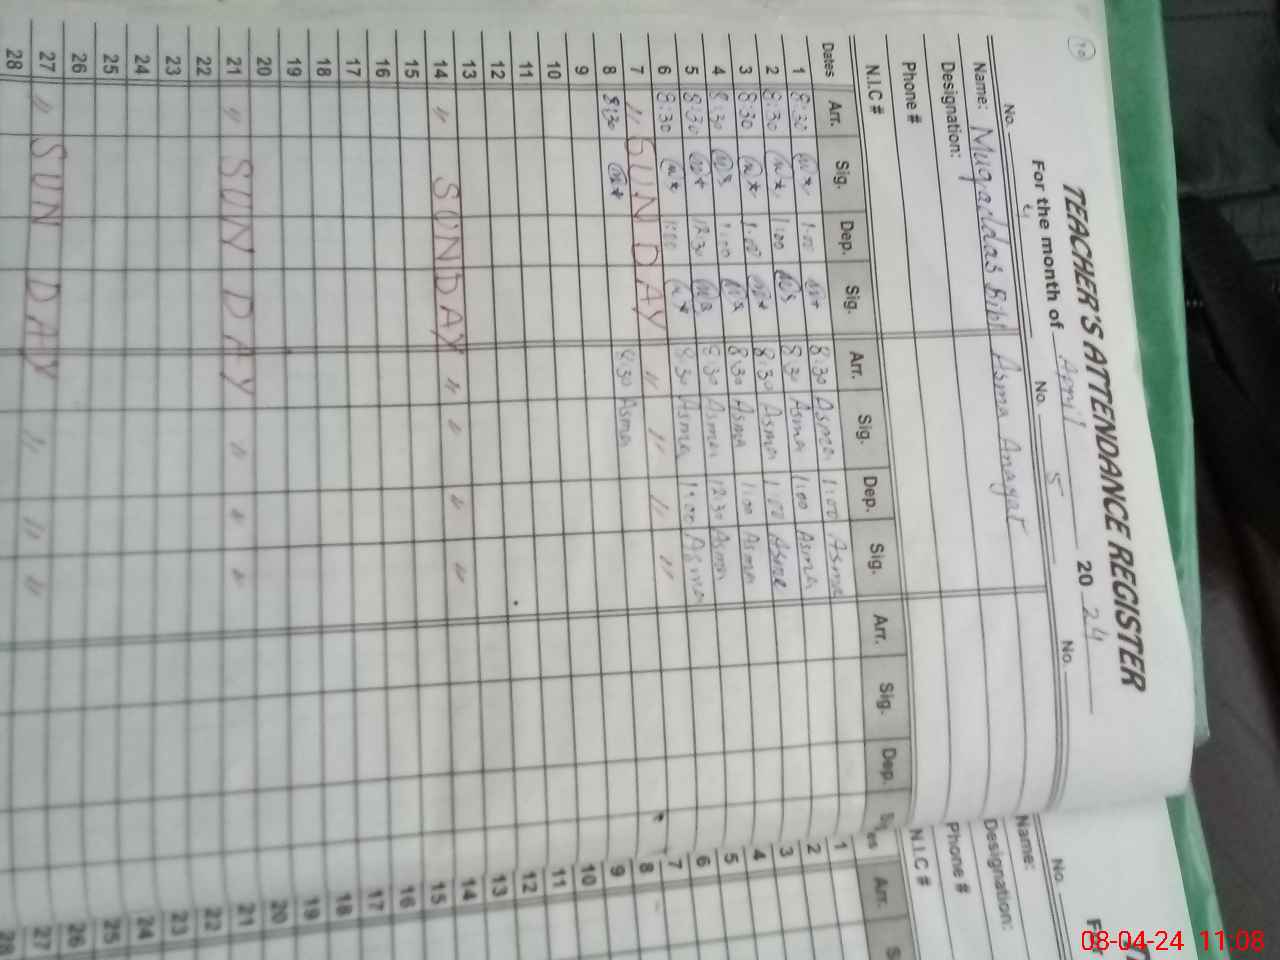 10
TEACHER'S ATTENDANCE REGISTER
For the month of April 2024
No. 4 No. 5 No.
Name: Muqaddas Bibi Asma Anayat
Designation:
Phone #
N.I.C #
Dates Arr. Sig. Dep. Sig. Arr. Sig. Dep. Sig. Arr. Sig. Dep.
1 8:30 1:00 8:30 Asma 1:00 Asma
2 8:30 1:00 8:30 Asma 1:00 Asma
3 8:30 1:00 8:30 Asma 1:00 Asma
4 8:30 1:00 8:30 Asma 1:00 Asma
5 8:30 12:30 8:30 Asma 12:30 Asma
6 8:30 1:00 8:30 Asma 1:00 Asma
7 " SUNDAY " " " "
8 8:30 8:30 Asma
9
10
11
12
13
14 " SUNDAY " " " "
15
16
17
18
19
20
21 " SUNDAY " " "
22
23
24
25
26
27 " SUNDAY " " "
28
No.
Name:
Designation:
Phone #
N.I.C #
Arr.
1
2
3
4
5
6
7
8
9
10
11
12
13
14
15
16
17
18
19
20
21
22
23
24
25
26
27
28
08-04-24 11:08